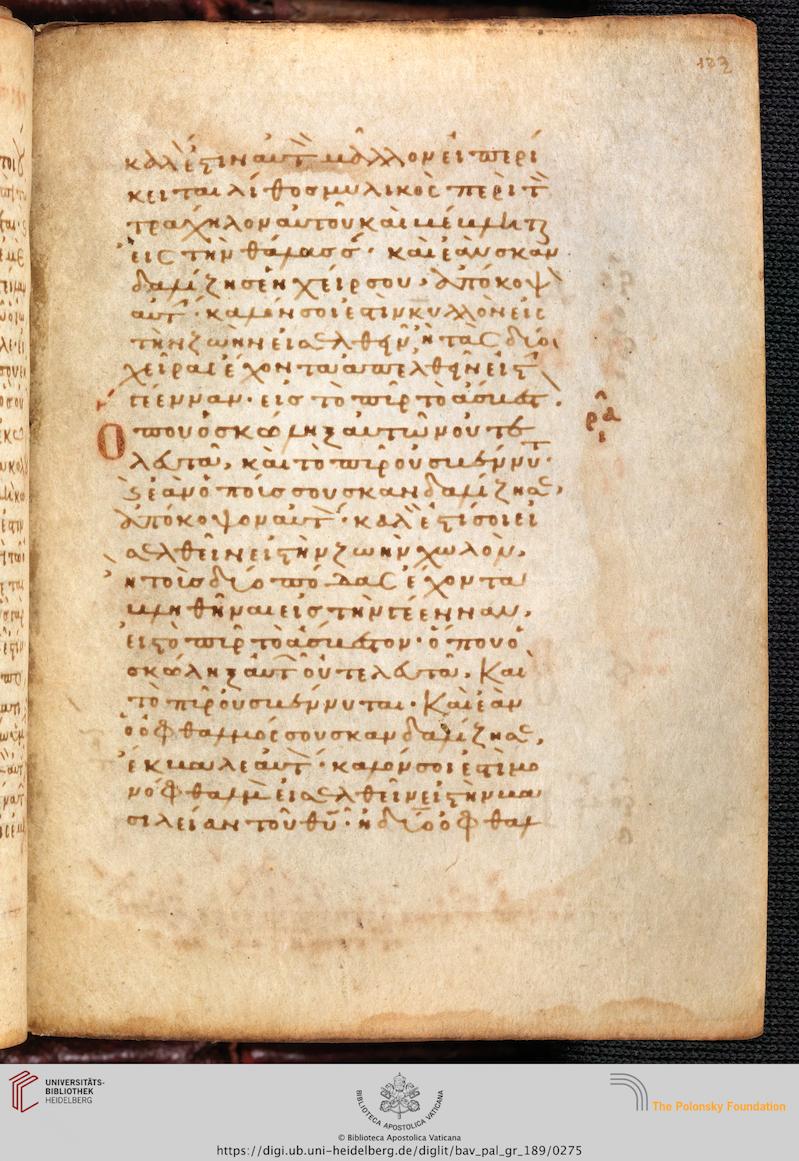 καλὸν ἐστὶν αὐτ μᾶλλον εἰ περί
κειται λίθος μυλικὸς περὶ τ
τράχηλον αὐτοῦ καὶ
εἰς τὴν θάλασσ· καὶ ἐὰν σκαν
δαλίζη σε ἡ χείρ σου, ἀπόκοψ
αὐτ· καλόν σοι ἐστὶν κυλλὸν εἰς
τὴν ζωὴν εἰσελθεῖν, ἢ τὰς δύο
χεῖρας ἔχοντα ἀπελθεῖν εἰς τ
γέενναν· εἰς τὸ πῦρ τὸ ἄσβεστ.
Ὅπου ὁ σκώληξ αὐτῶν οὐ τε
λευτᾶ, καὶ τὸ πῦρ οὐ σβέννυτ·
ἐὰν ὁ πούς σου σκανδαλίζη σε,
ἀπόκοψον αὐτ· καλ ἐστί σοι εἰ
σελθεῖν εἰς τὴν ζωὴν χωλὸν,
ἢ τοὺς δύο πόδας ἔχοντα
βληθῆναι εἰς τὴν γέενναν,
εἰς τὸ πῦρ τὸ ἄσβεστον· ὅπου ὁ
σκώληξ αὐτ οὐ τελευτᾶ, Καὶ
τὸ πῦρ οὐ σβέννυται· Καὶ ἐὰν
ὁ ὀφθαλμός σου σκανδαλίζη σε,
ἔκβαλε αὐτ· καλόν σοι ἐστὶ μο
νόφθαλμ εἰσελθεῖν εἰς τὴν βα
σιλείαν τοῦ θυ· ἢ δύο ὀφθαλ
© Biblioteca Apostolica Vaticana
UNIVERSITÄTS-
BIBLIOTHEK
HEIDELBERG
BIBLIOTECA APOSTOLICA VATICANA
The Polonsky Foundation
https://digi.ub.uni-heidelberg.de/diglit/bav_pal_gr_189/0275